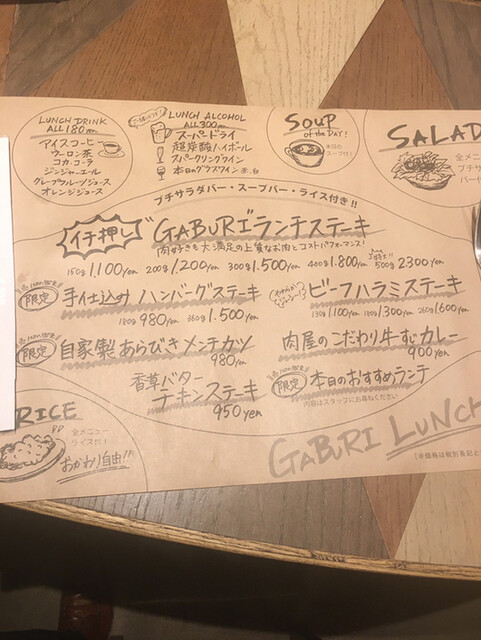 LUNCH DRINK
ALL 180yen
アイスコーヒー
ウーロン茶
コカ・コーラ
ジンジャーエール
グレープフルーツジュース
オレンジジュース
LUNCH ALCOHOL
ALL 300yen
スーパードライ
超炭酸ハイボール
スパークリングワイン
本日のグラスワイン 赤、白
SOUP
of the DAY!
本日の
スープ付♪
SALAD
全メニ
プチサ
バー
プチサラダバー・スープバー・ライス付き!!
イチ押し
"GABURI"ランチステーキ
肉好きも大満足の上質なお肉とコストパフォーマンス!
150g 1,100yen 200g 1,200yen 300g 1,500yen 400g 1,800yen 500g 2,300yen
限定
手仕込みハンバーグステーキ
180g 980yen 360g 1,500yen
ビーフハラミステーキ
130g 1,100yen 180g 1,300yen 260g 1,600yen
限定
自家製あらびきメンチカツ
980yen
肉屋のこだわり牛すじカレー
900yen
香草バター
チキンステーキ
950yen
限定
本日のおすすめランチ
内容はスタッフにお尋ねください
RICE
全メニュー
ライス付!
おかわり自由!!
GABURI LUNCH